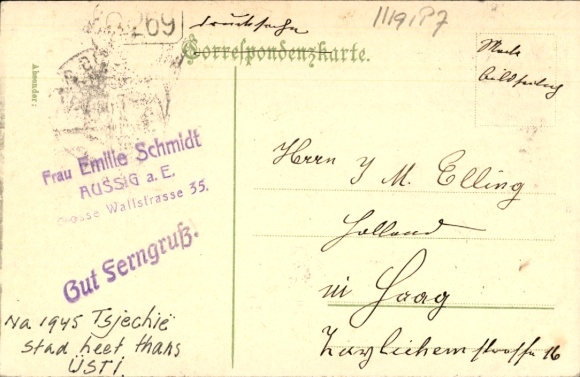 269
Drucksache
11191P7
Correspondenzkarte.
Marke
bildseitig
Absender:
Frau Emilie Schmidt
AUSSIG a. E.
Grosse Wallstrasse 35.
Gut Ferngruß.
Herrn J M. Elling
Holland
in Haag
strasse 16
Na 1945 Tsjechië
stad heet thans
ÜSTI.